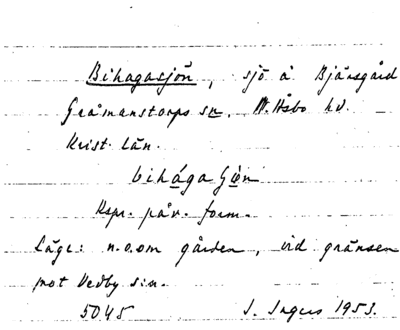 Bihagasjön, sjö å Bjärsgård
Gråmanstorps sn. N. Åsbo hd.
Krist. län.
bihága
Uspr. påv. form.
Läge: n.o. om gården, vid gränsen
mot Vedby s:n.
5045 I. Ingers 1953.